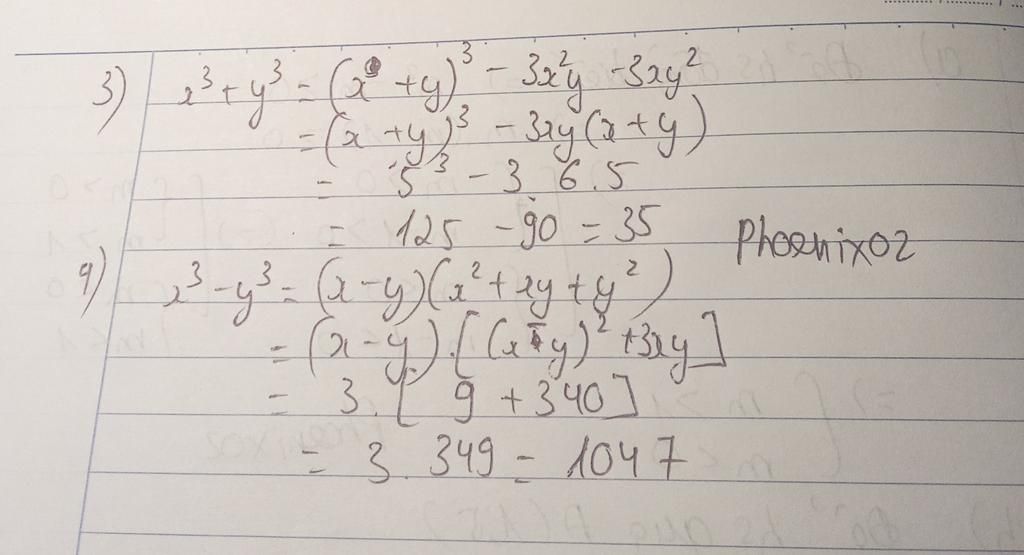 3) x³ + y³ = (x + y)³ - 3x²y - 3xy²
= (x + y)³ - 3xy(x + y)
= 5³ - 3. 6. 5
= 125 - 90 = 35
Phoenix02
4) x³ - y³ = (x - y)(x² + xy + y²)
= (x - y).[(x - y)² + 3xy]
= 3. [ 9 + 340]
= 3. 349 = 1047